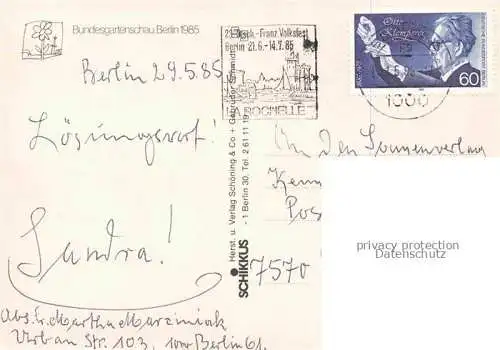 Bundesgartenschau Berlin 1985
Berlin 29.5.85
Lösungswort!
Sandra!
Abs. Martha Marziniak
Urban Str. 103, 1000 Berlin 61
Herst. u. Verlag Schöning & Co + Gebrüder Schmidt
- 1 Berlin 30, Tel. 2 61 11 19
SCHIKKUS
Dtsch.-Franz. Volksfest
Berlin 21.6.-14.7.85
LA ROCHELLE
Otto
Klemperer
60
DEUTSCHE BUNDESPOST BERLIN
1000
An den Sonnenverlag
Pos
7570
privacy protection
Datenschutz